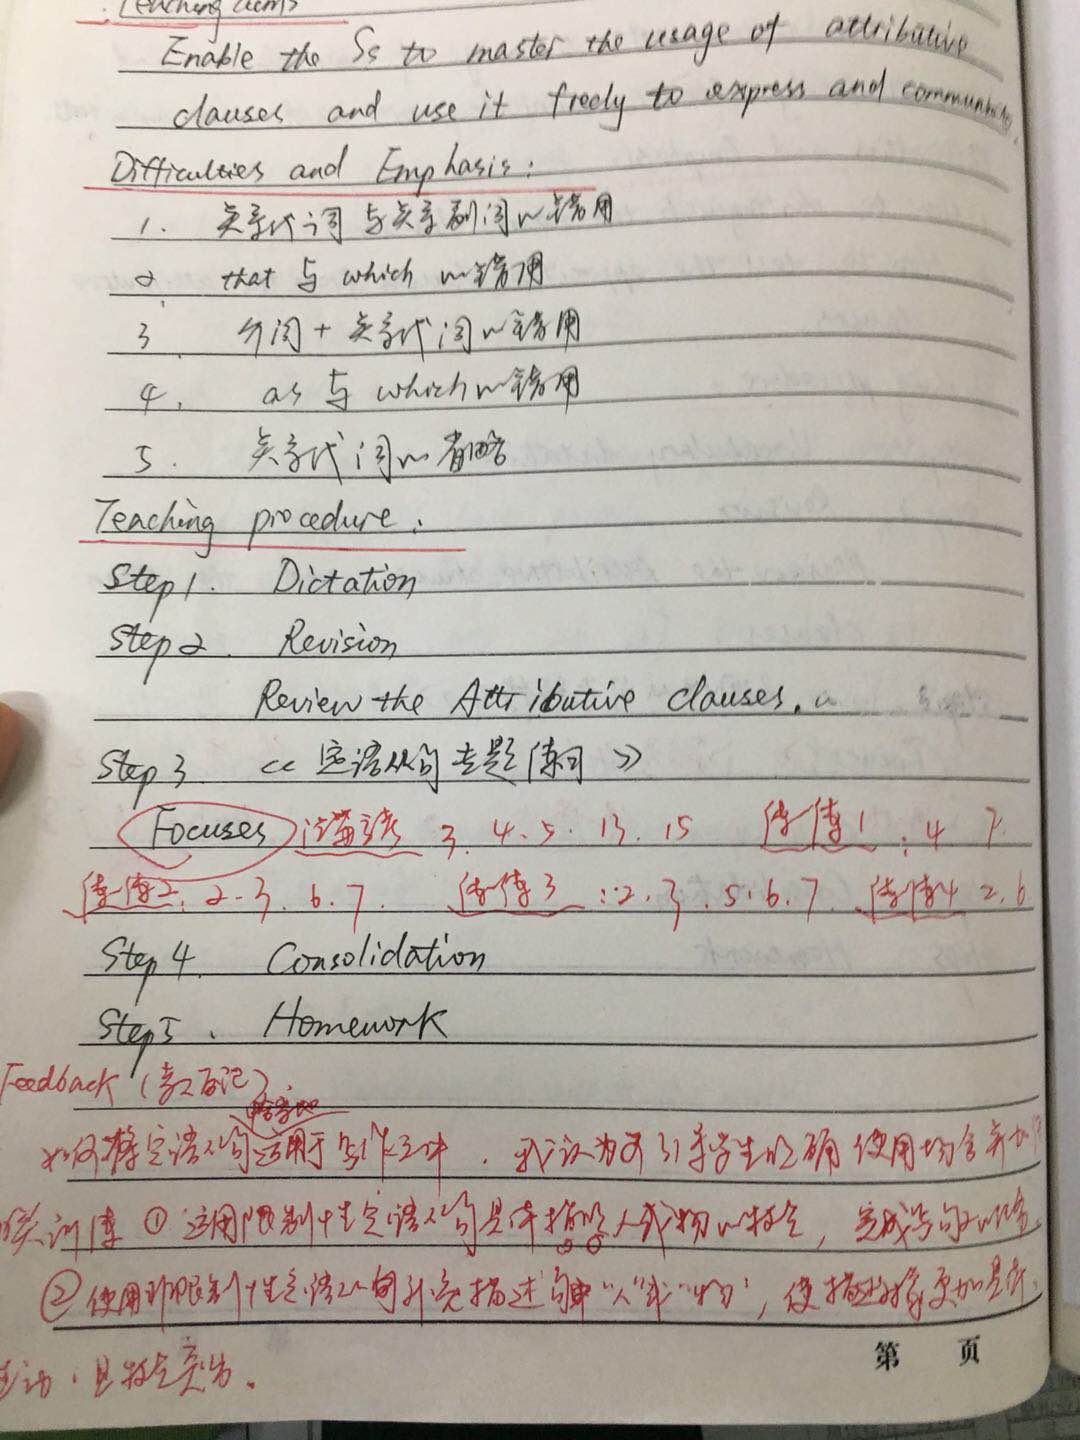 Teaching aims
Enable the Ss to master the usage of attributive
clauses and use it freely to express and communicate.
Difficulties and Emphasis:
1. 关系代词与关系副词的错用
2. that 与 which 的错用
3. 介词 + 关系代词的错用
4. as 与 which 的错用
5. 关系代词的省略
Teaching procedure:
Step 1. Dictation
Step 2. Revision
Review the Attributive clauses.
Step 3. 《定语从句专题练习》
Focuses 3. 4. 5. 13. 15 练一练1: 4 7.
练一练2: 2. 3. 6. 7. 练一练3: 2. 3. 5. 6. 7. 练一练4 2. 6
Step 4. Consolidation
Step 5. Homework
Feedback (教后记)
恰当地
如何将定语从句运用于写作之中, 我认为可引导学生明确使用场合并加
训练 ① 运用限制性定语从句具体描述人或物的特点, 完成写句的任务
② 使用非限制性定语从句补充描述句中“人”或“物”, 使描述对象更加具体
生动, 且特点突出.
第 页